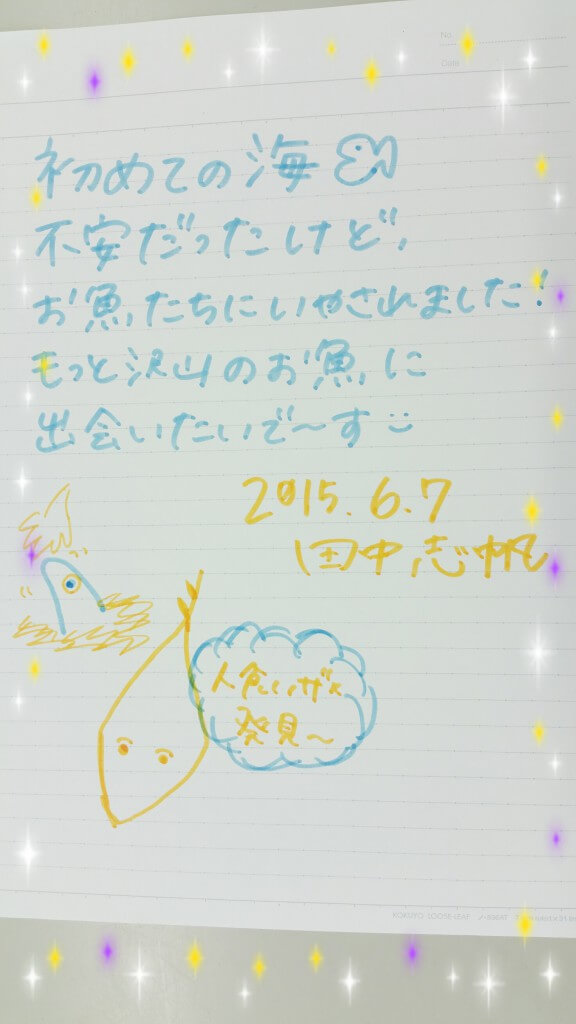 No.
Date
初めての海
不安だったけど、
お魚たちにいやされました!
もっと沢山のお魚に
出会いたいで〜す
2015.6.7
田中志帆
発見〜
KOKUYO LOOSE-LEAF